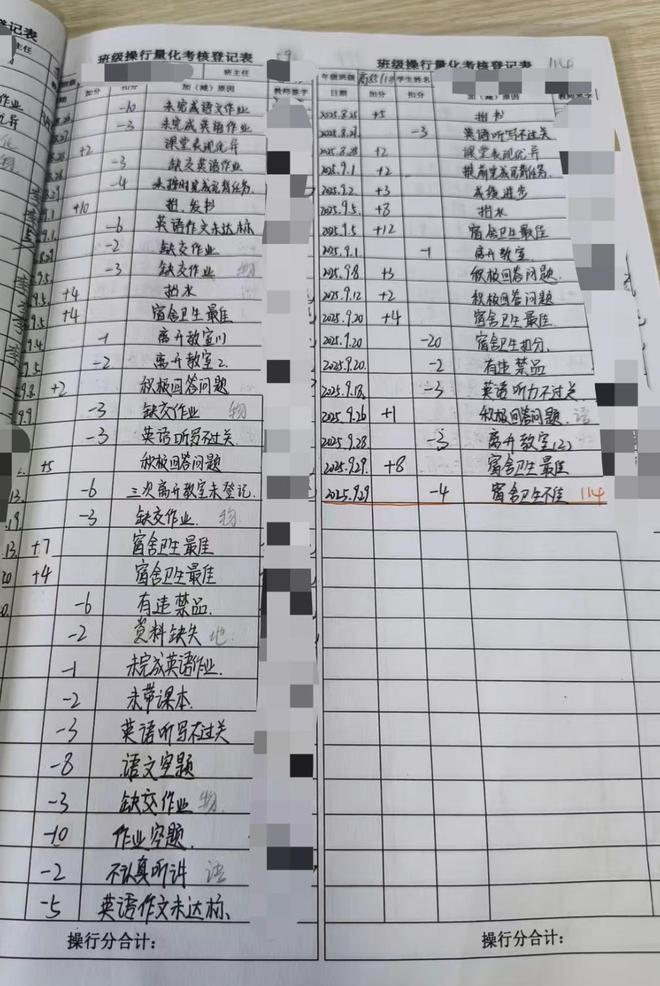 班级操行量化考核登记表
班主任
加分 扣分 加(减)原因 教师签字
-10 未完成语文作业
-3 未完成英语作业
+2 课堂表现优异
-3 缺交英语作业
-4 未按时完成背书任务
+10 搬、发书
-6 英语作文未达标
-2 缺交作业
-3 缺交作业 物
+4 抬水
+4 宿舍卫生最佳
-1 离开教室(1)
-2 离开教室2.
+2 积极回答问题
-3 缺交作业 物
-3 英语听写不过关.
+5 积极回答问题
-6 三次离开教室未登记.
-3 缺交作业. 物
+7 宿舍卫生最佳
+4 宿舍卫生最佳
-6 有违禁品.
-2 资料缺失 地
-1 未完成英语作业.
-2 未带课本.
-3 英语听写不过关
-8 语文空题
-3 缺交作业 物
-10 作业空题.
-2 不认真听讲 语
-5 英语作文未达标、
操行分合计:
班级操行量化考核登记表 114
年级班级 学生姓名
日期 加分 扣分 加(减)原因 教师签字
2025.8.25 +5 搬书
2025.8.27 -3 英语听写不过关
2025.8.28 +2 课堂表现优异
2025.9.1 +2 提前完成背书任务.
2025.9.2 +3 成绩进步
2025.9.5 +8 抬水
2025.9.5 +12 宿舍卫生最佳
2025.9.1 -1 离开教室.
2025.9.8 +3 积极回答问题.
2025.9.12 +2 积极回答问题
2025.9.20 +4 宿舍卫生最佳
2025.9.20 -20 宿舍卫生扣分.
2025.9.20. -2 有违禁品
2025.9.18. -3 英语听力不过关
2025.9.26 +1 积极回答问题. 语
2025.9.28 -3 离开教室(2)
2025.9.29. +8 宿舍卫生最佳
2025.9.29 -4 宿舍卫生不佳 114
操行分合计: